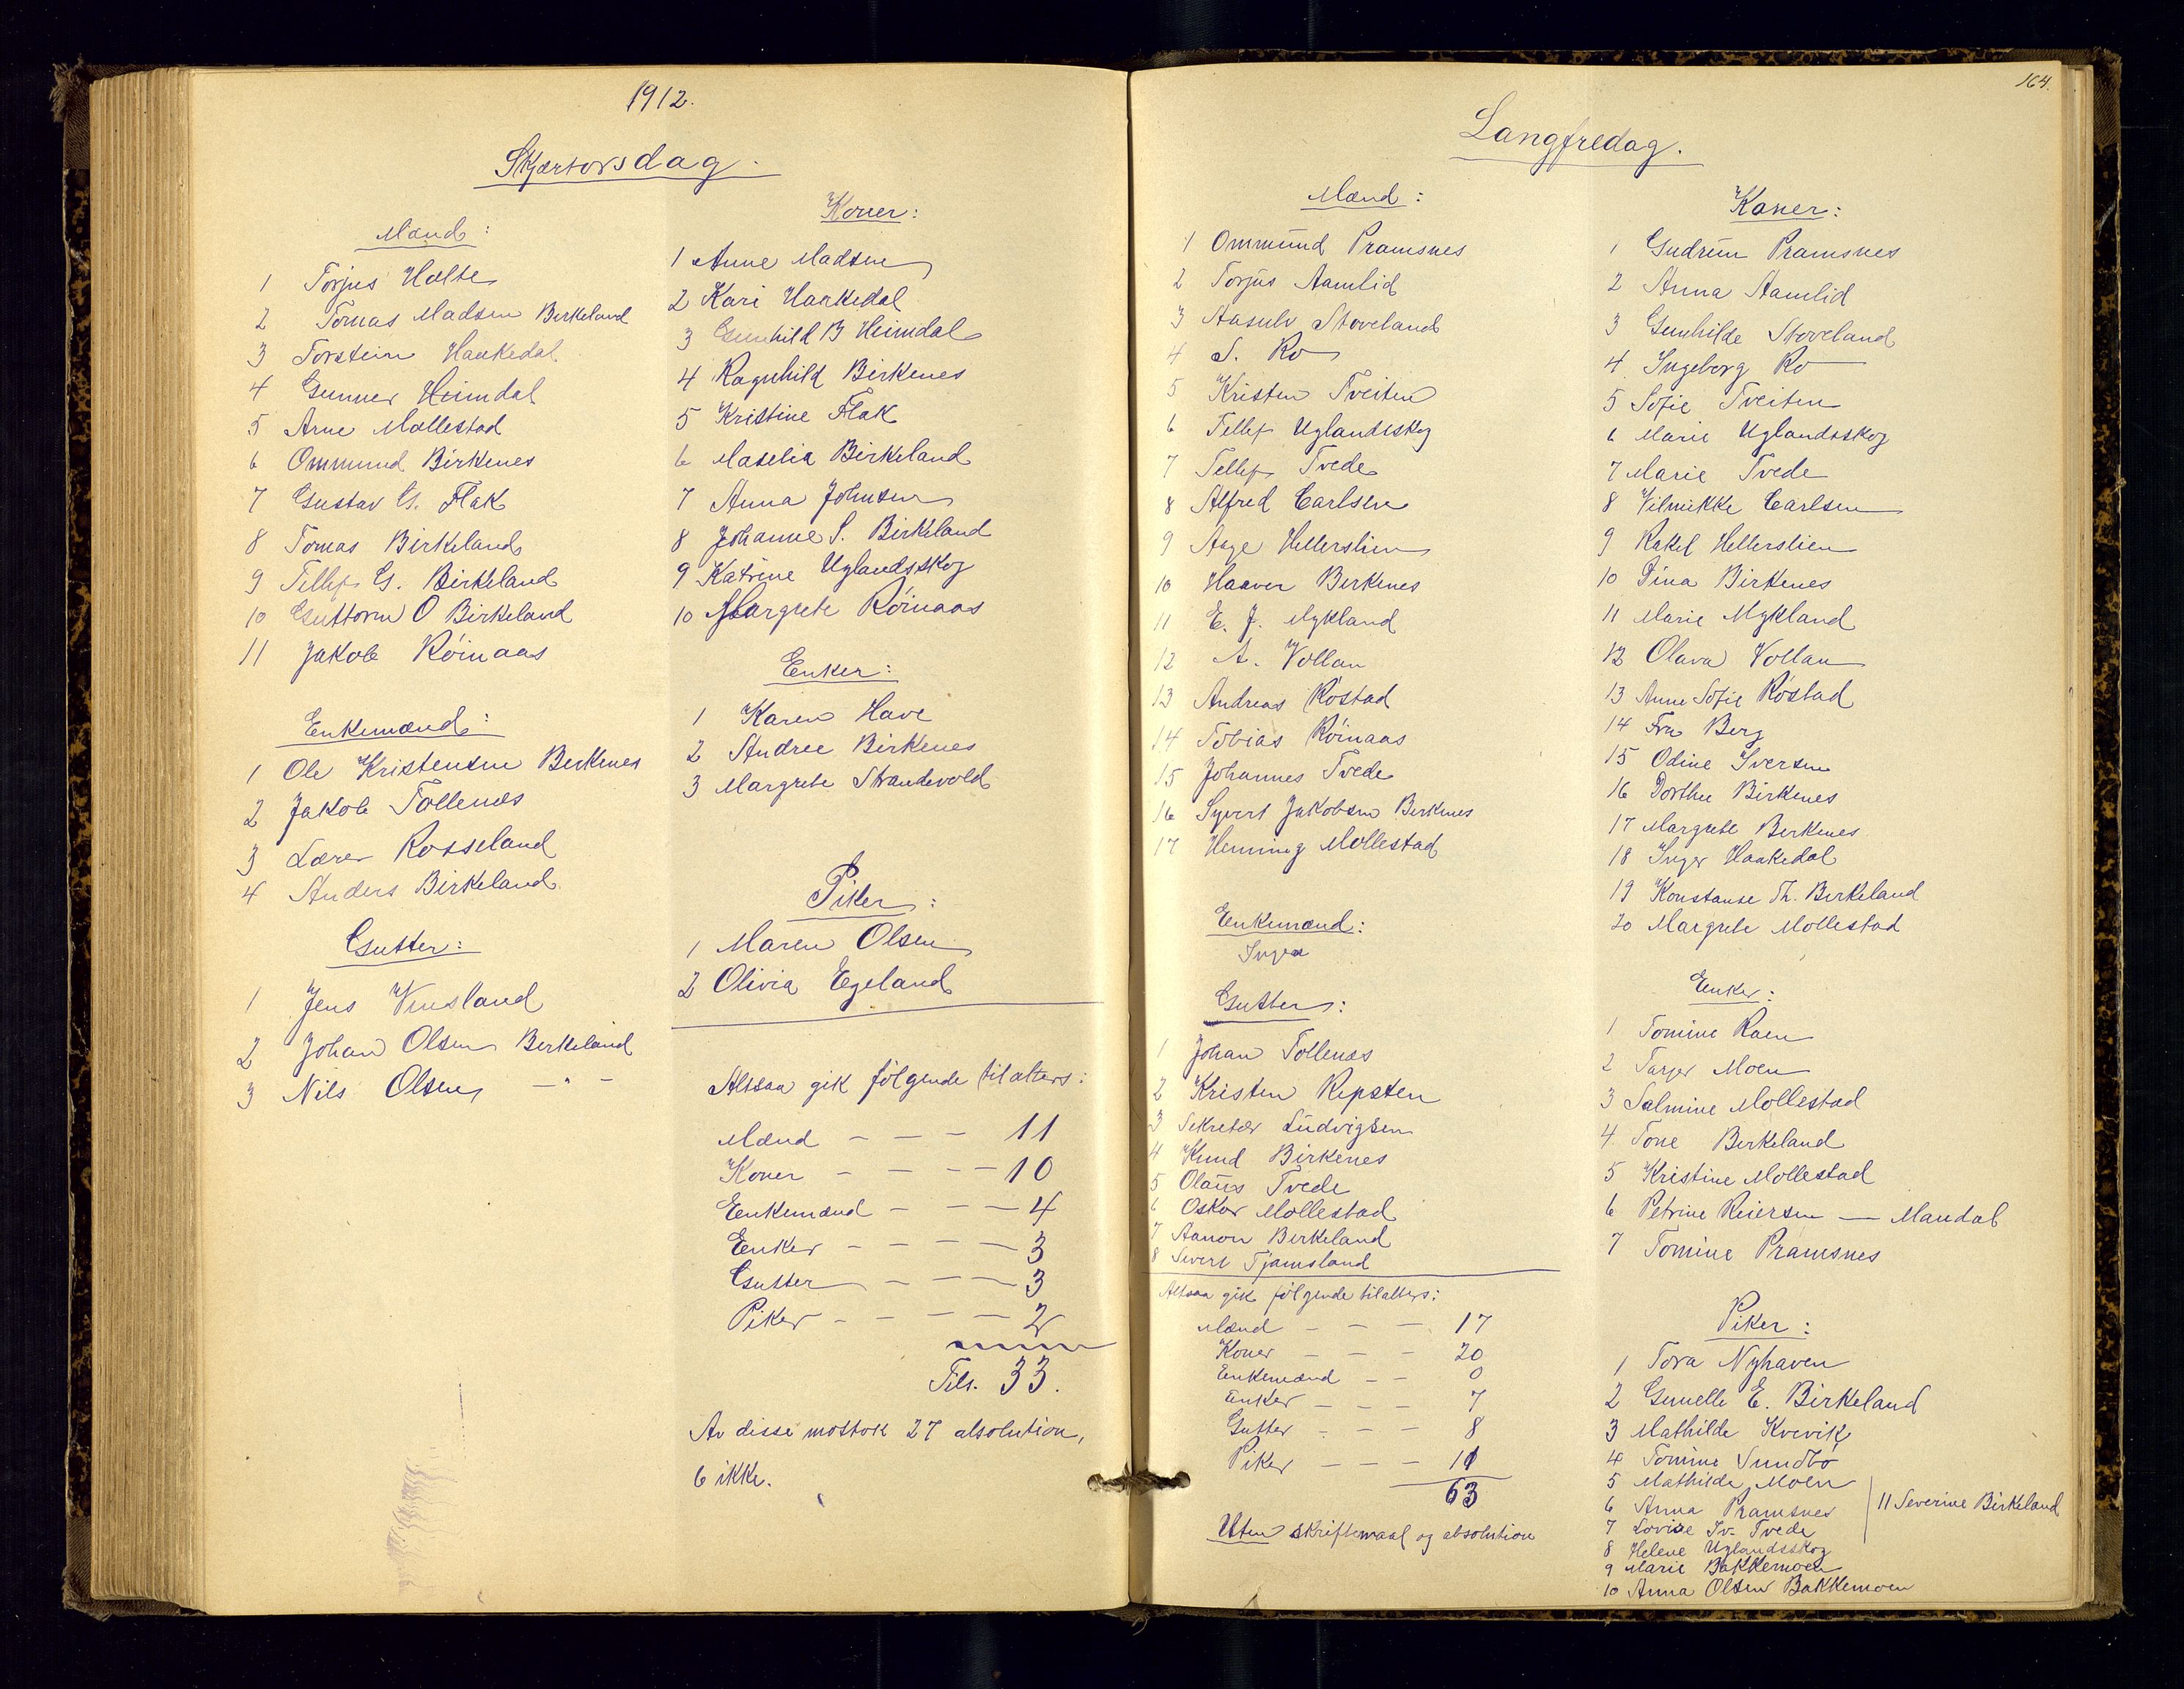 1912.
Skjærtorsdag.
Mænd:
1 Torjus Holte
2 Tomas Madsen Birkeland
3 Torstein Haakedal
4 Gunner Heimdal
5 Arne Mollestad
6 Ommund Birkenes
7 Gustav G. Flak
8 Tomas Birkeland
9 Tellef G. Birkeland
10 Guttorm O Birkeland
11 Jakob Röinaas
Enkemænd:
1 Ole Kristensen Birkenes
2 Jakob Tollenæs
3 Lærer Rosseland
4 Anders Birkeland
Gutter:
1 Jens Vinsland
2 Johan Olsen Birkeland
3 Nils Olsen - " -
Koner:
1 Anne Madsen
2 Kari Haakedal
3 Gunhild B Heimdal
4 Ragnhild Birkenes
5 Kristine Flak
6 Maselia Birkeland
7 Anna Johnsen
8 Johanne S. Birkeland
9 Katrine Uglandsskog
10 Margrete Röinaas
Enker:
1 Karen Have
2 Andree Birkenes
3 Margrete Strandevold
Piker:
1 Maren Olsen
2 Olivia Egeland
Altsaa gik følgende til alters:
Mænd - - - 11
Koner - - - - 10
Enkemænd - - - 4
Enker - - - - 3
Gutter - - - 3
Piker - - - - 2
Tils. 33.
Av disse mottok 27 absolution,
6 ikke.
164.
Langfredag.
Mænd:
1 Ommund Pramsnes
2 Torjus Aamlid
3 Aasulv Stoveland
4 S. Ro
5 Kristen Tveiten
6 Tellef Uglandsskog
7 Tellef Tvede
8 Alfred Carlsen
9 Aage Hellerslien
10 Haaver Birkenes
11 E. J. Mykland
12 A. Vollan
13 Andreas Röstad
14 Tobias Röinaas
15 Johannes Tvede
16 Syvert Jakobsen Birkenes
17 Henning Mollestad
Enkemænd:
Ingen
Gutter:
1 Johan Tollenæs
2 Kristen Repsten
3 Sekretær Ludvigsen
4 Knud Birkenes
5 Olaus Tvede
6 Oskar Mollestad
7 Aanon Birkeland
8 Sivert Tjamsland
Altsaa gik følgende til alters:
Mænd - - - 17
Koner - - - 20
Enkemænd - - 0
Enker - - - 7
Gutter - - - 8
Piker - - - 11
63
Uten skriftemaal og absolution
Koner:
1 Gudrun Pramsnes
2 Anna Aamlid
3 Gunhilde Stoveland
4 Ingeborg Ro
5 Sofie Tveiten
6 Marie Uglandsskog
7 Marie Tvede
8 Vilmikke Carlsen
9 Rakel Hellerslien
10 Sina Birkenes
11 Marie Mykland
12 Olava Vollan
13 Anne Sofie Röstad
14 Fru Berg
15 Odine Iversen
16 Dorthee Birkenes
17 Margrete Birkenes
18 Inger Haakedal
19 Konstanse Th. Birkeland
20 Margrete Mollestad
Enker:
1 Tomine Raen
2 Tarjer Moen
3 Salmine Mollestad
4 Tone Birkeland
5 Kristine Mollestad
6 Petrine Reiersen — Mandal
7 Tomine Pramsnes
Piker:
1 Tora Nyhaven
2 Gunelle E. Birkeland
3 Mathilde Kvevik
4 Tomine Sundbö
5 Mathilde Moen
6 Anna Pramsnes
7 Lovise Iv. Tvede
8 Helene Uglandsskog
9 Marie Bakkemoen
10 Anna Olsen Bakkemoen
11 Severine Birkeland